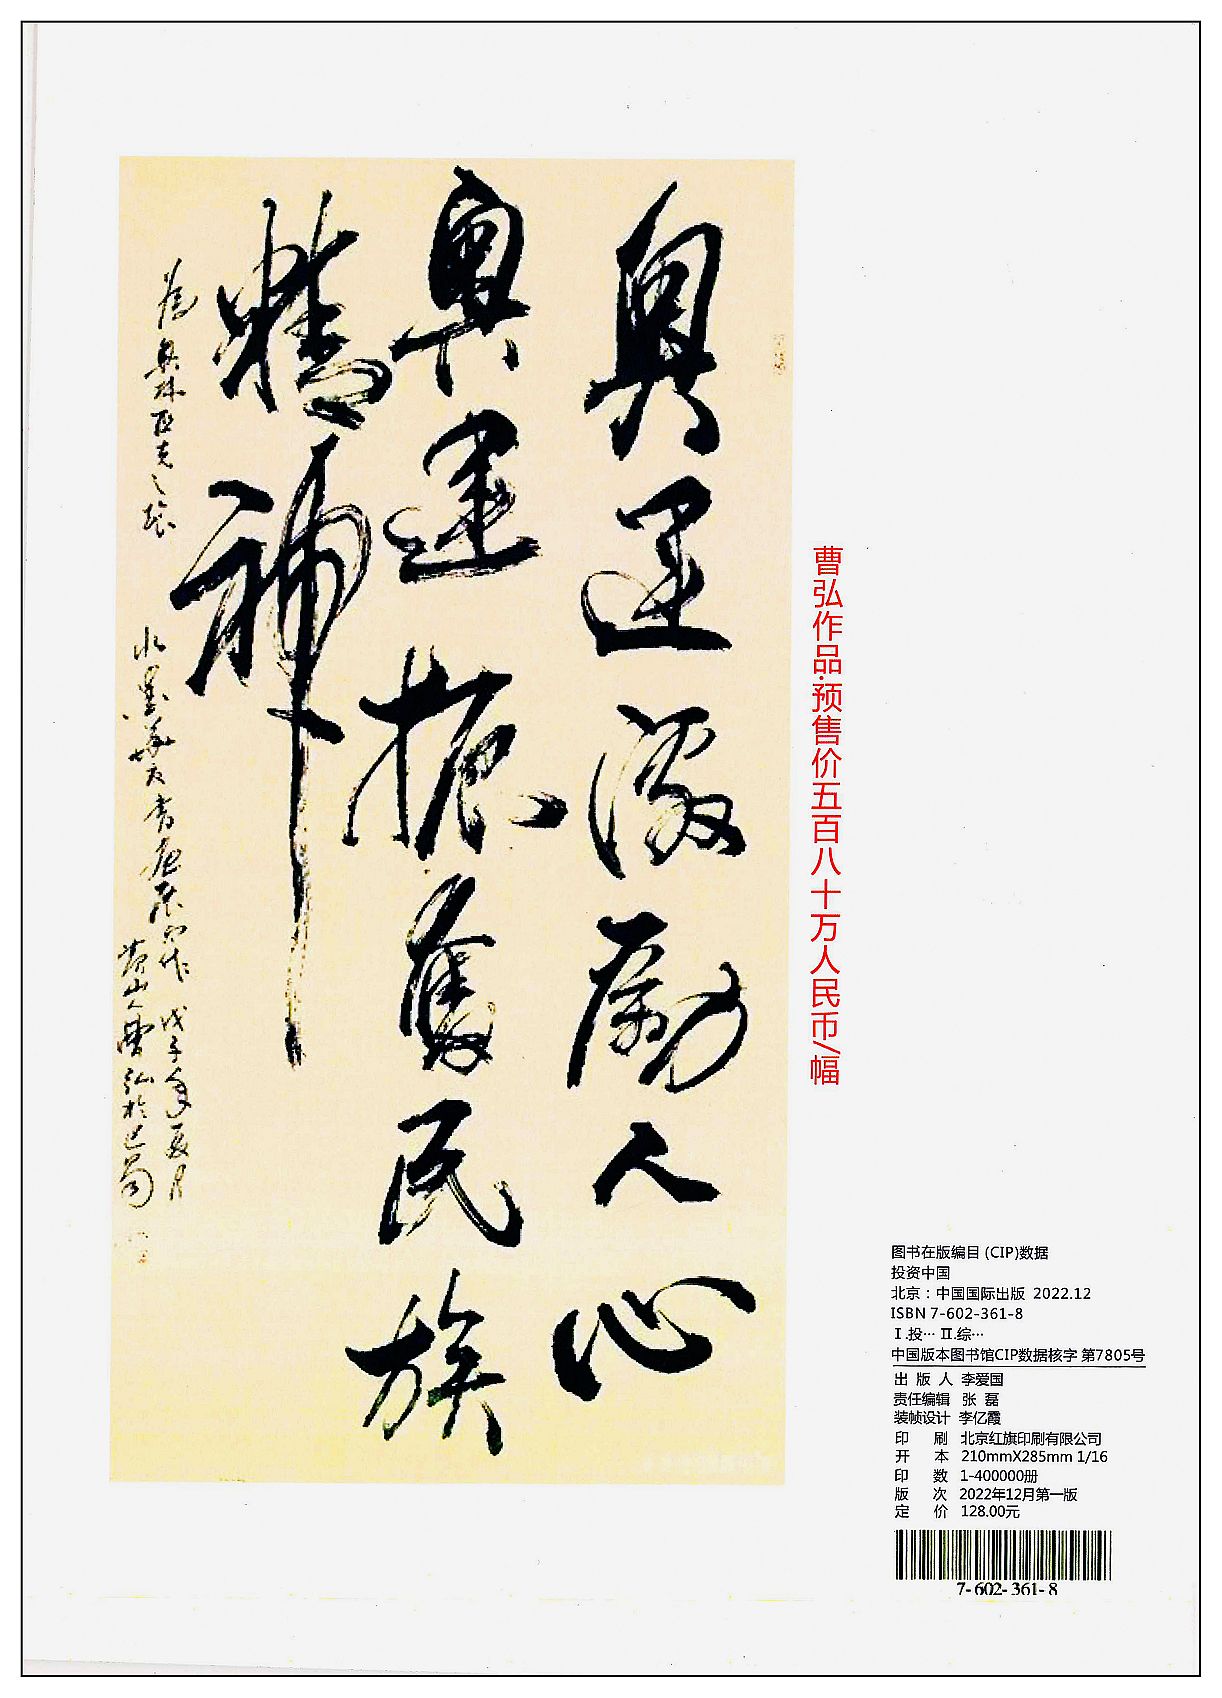 奥运激励人心
奥运振奋民族
精神
为奥林匹克之旅
水墨华夏书画展而作 戊子年夏月
黄山人曹弘於巴蜀
曹弘作品·预售价五百八十万人民币/幅
图书在版编目 (CIP)数据
投资中国
北京：中国国际出版 2022.12
ISBN 7-602-361-8
Ⅰ.投… Ⅱ.综…
中国版本图书馆CIP数据核字 第7805号
出 版 人 李爱国
责任编辑 张 磊
装帧设计 李亿霞
印 刷 北京红旗印刷有限公司
开 本 210mmX285mm 1/16
印 数 1-400000册
版 次 2022年12月第一版
定 价 128.00元
7-602-361-8